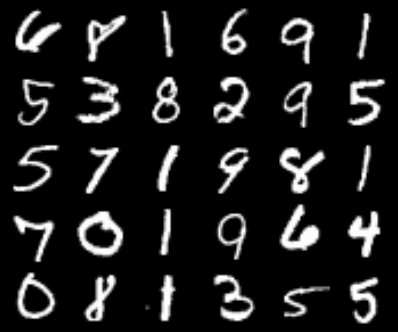 6 8 1 6 9 1
5 3 8 2 9 5
5 7 1 9 8 1
7 0 1 9 6 4
0 8 1 3 5 5